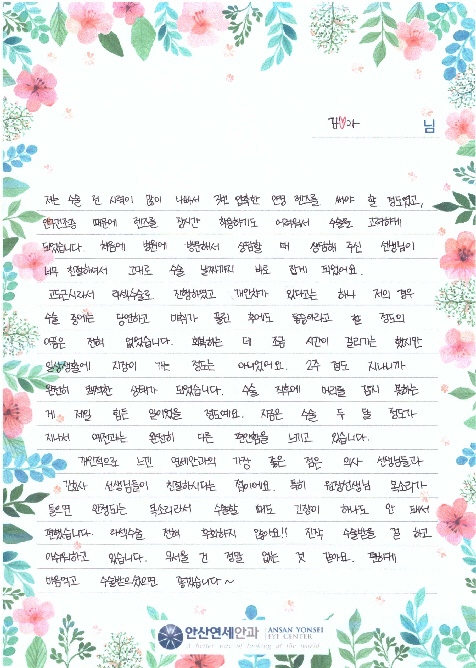 김♡아 님
저는 수술 전 시력이 많이 나빠서 작고 압축한 안경 렌즈를 써야 할 정도였고,
안구건조증 때문에 렌즈를 잠시간 착용하기도 어려워서 수술을 고려하게
되었습니다. 처음에 병원에 방문해서 상담할 때 상담해 주신 선생님이
너무 친절하셔서 그대로 수술 날짜까지 바로 잡게 되었어요.
고도근시라서 라섹수술로 진행하였고 개인차가 있다고는 하나 저의 경우
수술 중에는 당연하고 마취가 풀린 후에도 통증이라고 할 정도의
아픔은 전혀 없었습니다. 회복하는 데 조금 시간이 걸리기는 했지만
일상생활에 지장이 가는 정도는 아니었어요. 2주 정도 지나니까
완전히 회복한 상태가 되었습니다. 수술 직후에 머리를 감지 못하는
게 제일 힘든 일이었을 정도예요. 지금은 수술 두 달 정도가
지나서 예전과는 완전히 다른 편안함을 느끼고 있습니다.
개인적으로 느낀 연세안과의 가장 좋은 점은 의사 선생님들과
간호사 선생님들이 친절하시다는 점이에요. 특히 원장선생님 목소리가
들으면 안정되는 목소리라서 수술할 때도 긴장이 하나도 안 돼서
편했습니다. 라섹수술 전혀 후회하지 않아요!! 진작 수술받을 걸 하고
아쉬워하고 있습니다. 무서울 건 정말 없는 것 같아요. 편하게
마음먹고 수술받으셨으면 좋겠습니다~
안산연세안과 ANSAN YONSEI EYE CENTER
A better way of looking at the world